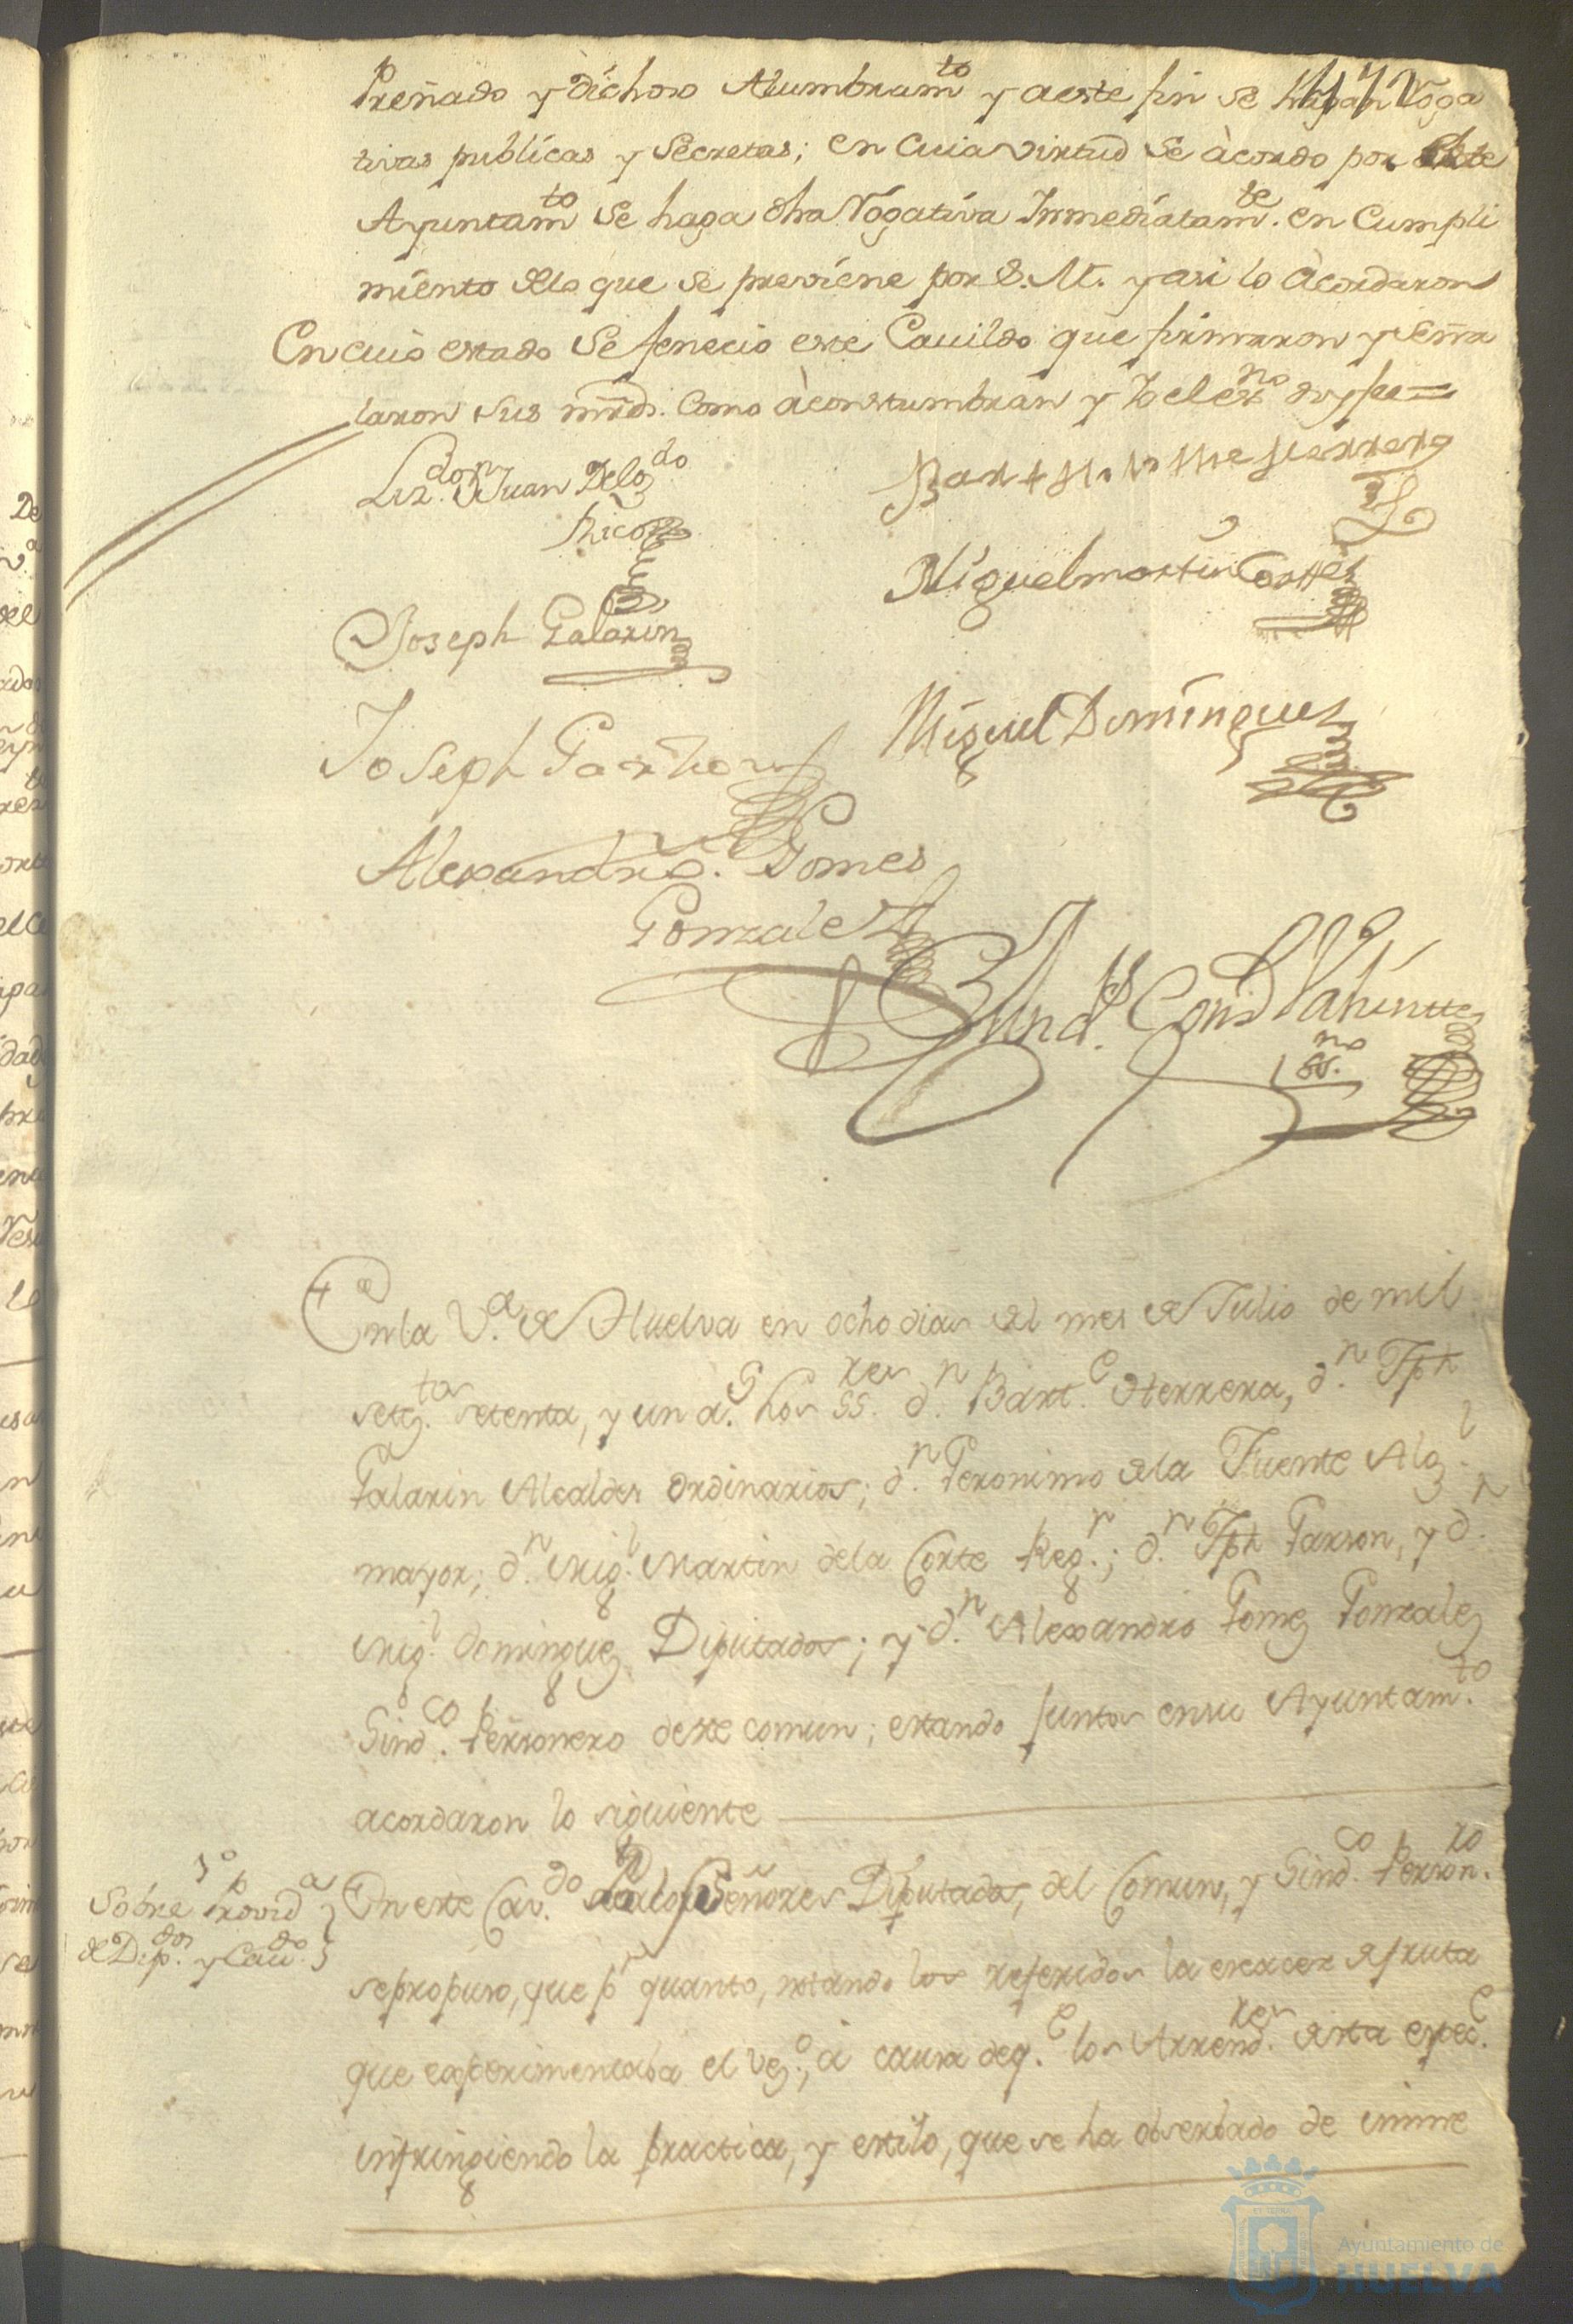 Preñado y dichoso Alumbramto y a este fin se hagan Roga
tivas publicas y Secretas; en cuia virtud Se àcordo por este
Ayuntamto Se haga dha Rogativa Inmediatamte. en Cumpli
miento de lo que se previene por S. M. y asi lo àcordaron
En cuio estado Se fenecio este Cavildo que firmaron y seña
laron sus mrds. Como àcostumbran y Yo el esno doy fee =
Lizdo. Dn Juan Delgdo
Rico
Bartholome Herrera
Miguel martin Cortes
Joseph Galarin
Joseph Garzon
Miguel Domingues
Alexandro. Gomes
Gonzalez
Cond
esno.
En la Va. de Huelva en ocho dias del mes de Julio de mil
setetos. setenta, y un as. los SSres. dn. Barte. Herrera, dn. Jph
Galarin Alcaldes ordinarios; dn. Geronimo de la Fuente Algl.
mayor; dn. Migl. Martin de la Corte Regr.; dn. Jph Garson, y dn.
Migl. dominguez Diputados; y dn. Alexandro Gomez Gonzalez
Sindco. Personero deste comun; estando Juntos en su Ayuntamto.
acordaron lo siguiente
1o
Sobre Provida
de Dipdos. y Cavdo.
En este Cavdo. Señores Diputados, del Comun, y Sindco. Personro.
se propuso, que pr quanto, notando los referidos la escacez de fruta
que experimentaba el Vezo., á causa de qe. los Arrendres. de esta espece.
infringiendo la practica, y estilo, que se ha obserbado de inme
Ayuntamiento de
HUELVA